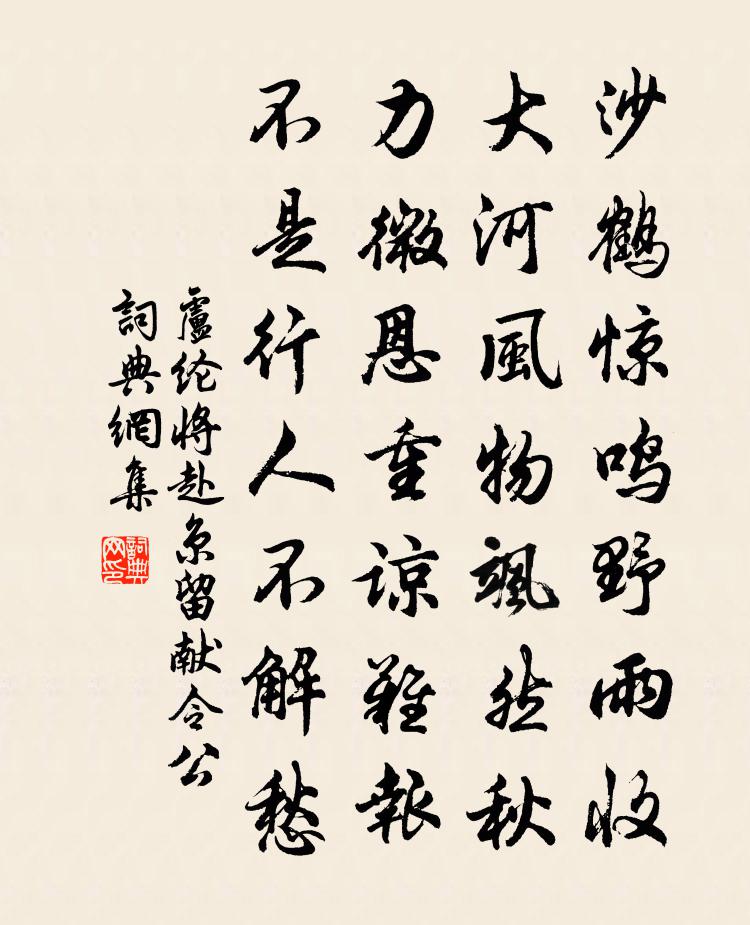 沙鶴惊鳴野雨收
大河風物颯然秋
力微恩重諒難報
不是行人不解愁
盧纶將赴京留献令公
詞典網集
詞典网印